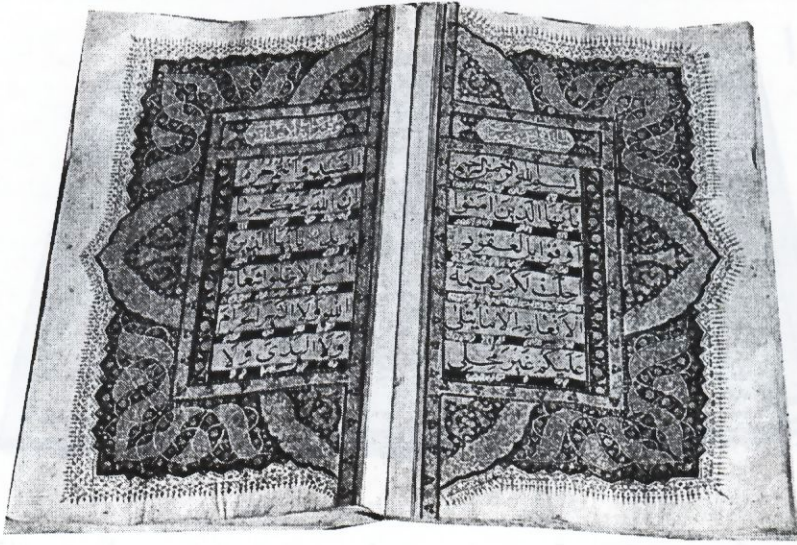 بسم الله الرحمن الرحيم
يا ايها الذين امنوا
اوفوا بالعقود
احلت لكم بهيمة
الانعام الا ما يتلى
عليكم غير محلى
الصيد وانتم حرم
ان الله يحكم ما
يريد يا ايها الذين
امنوا لا تحلوا شعائر
الله ولا الشهر الحرام
ولا الهدى ولا